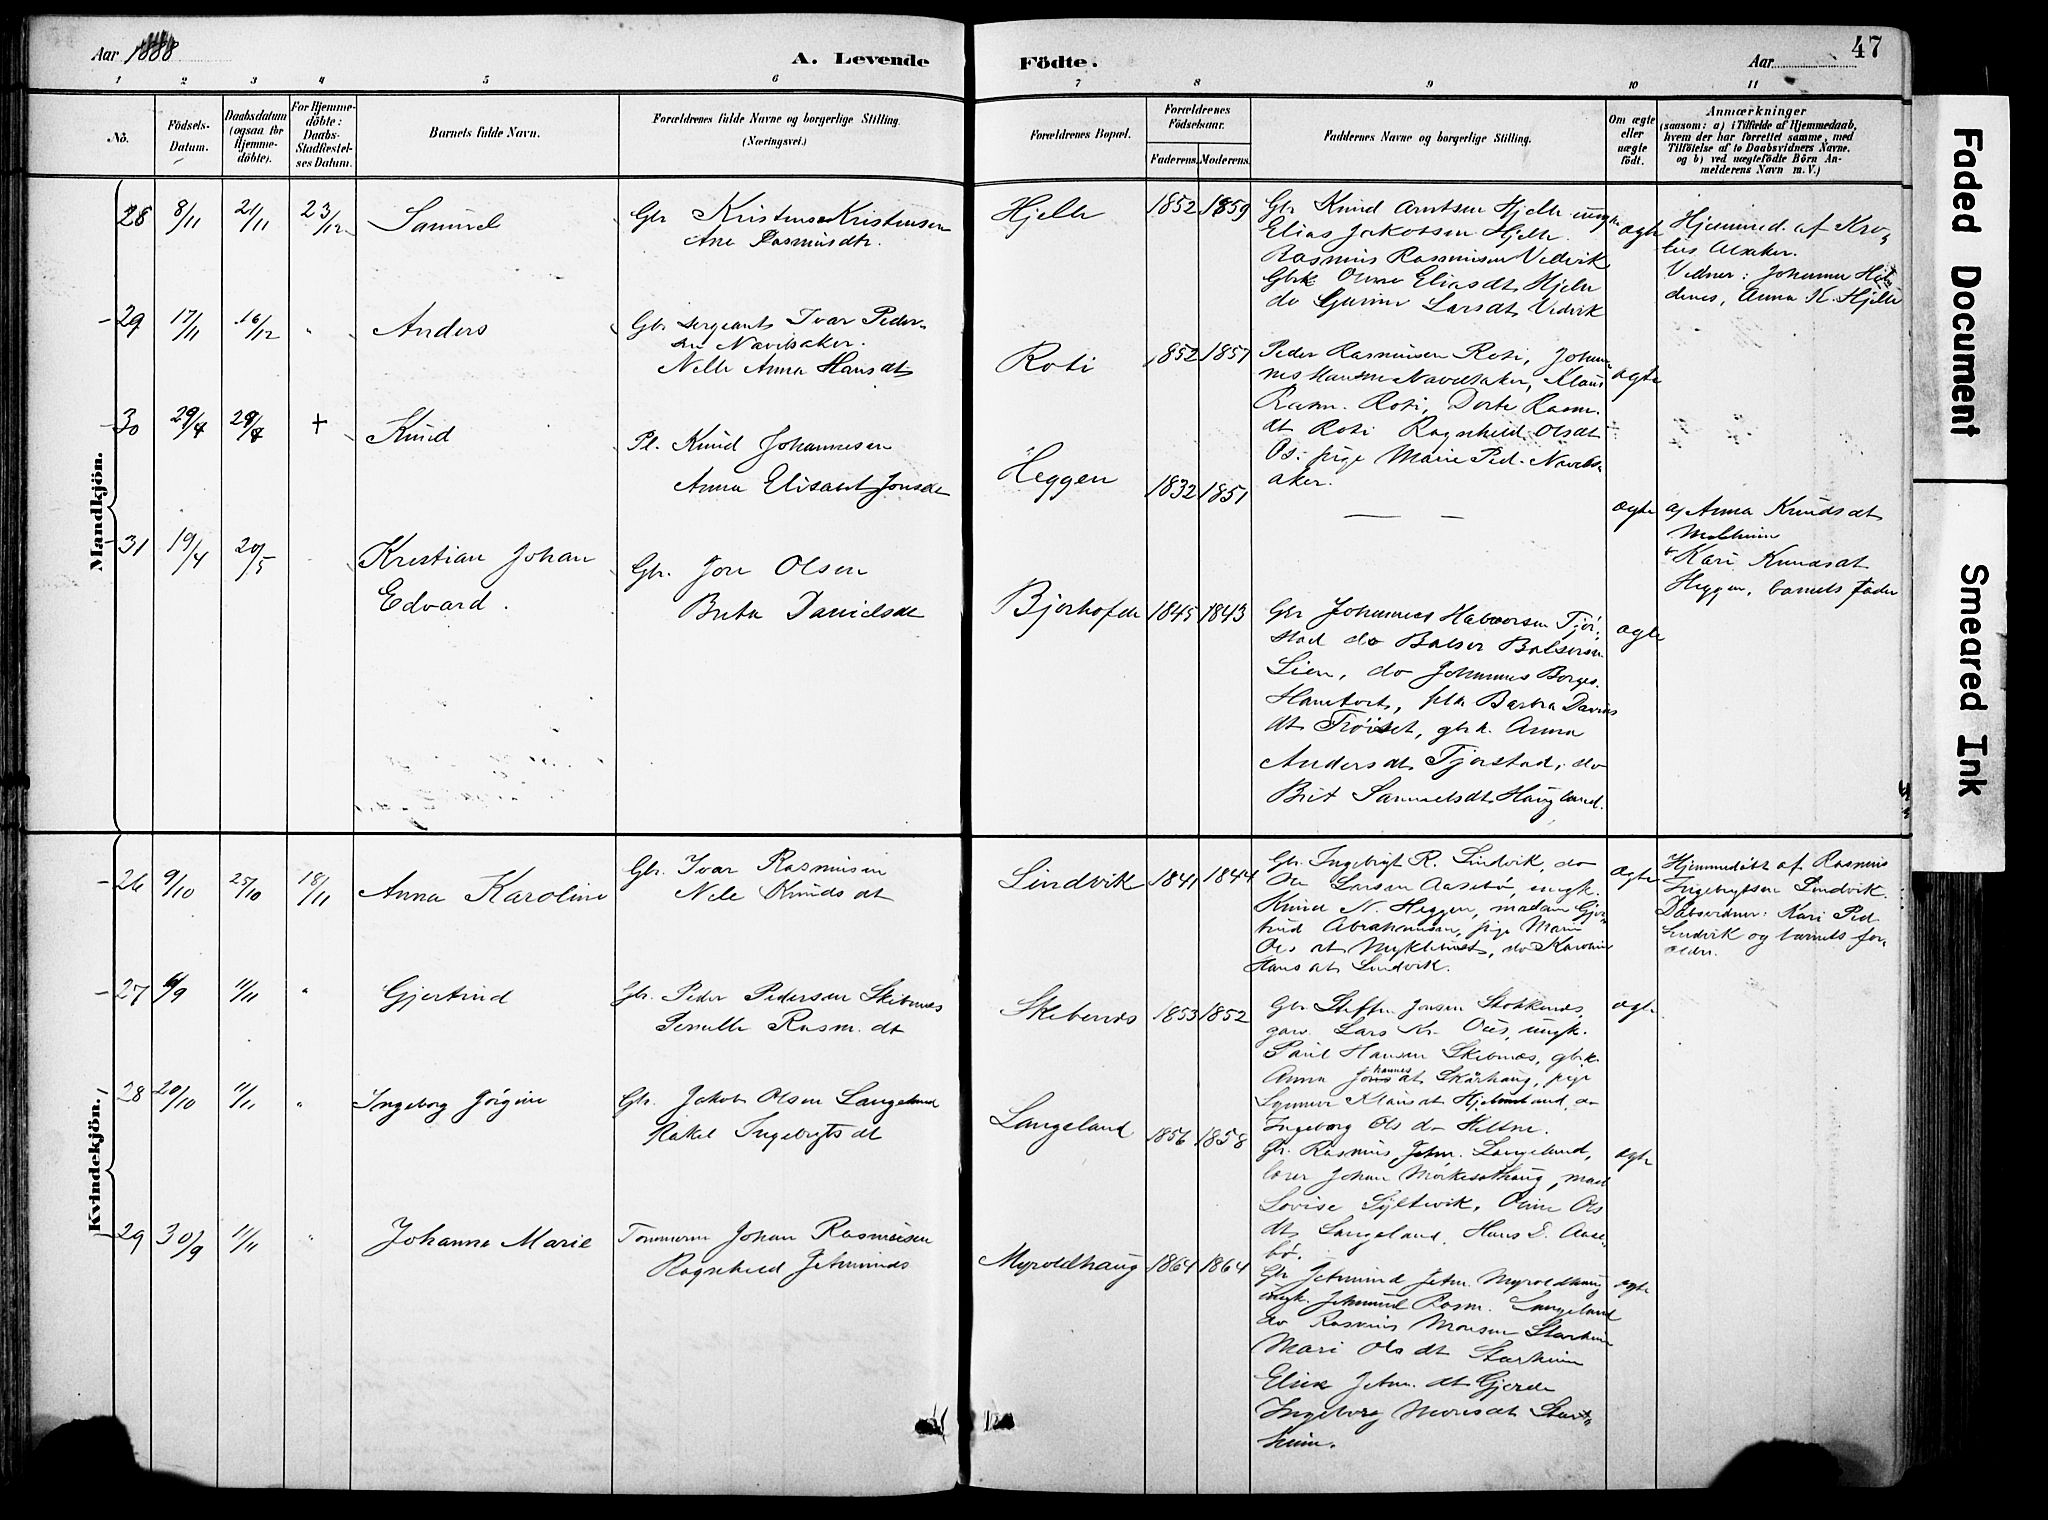 Aar 1888
A. Levende
Födte.
Aar
47
1 2 3 4 5 6 7 8 9 10 11
Nô.
Födsels-
Datum.
Daabsdatum
(ogsaa for
Hjemme-
döbte).
For Hjemme-
döbte:
Daabs-
Stadfæstel-
ses Datum.
Barnets fulde Navn.
Forældrenes fulde Navne og borgerlige Stilling.
(Næringsvei.)
Forældrenes Bopæl.
Forældrenes
Födselsaar.
Faderens. Moderens.
Faddernes Navne og borgerlige Stilling.
Om ægte
eller
uægte
født.
Anmærkninger
(saasom: a) i Tilfælde af Hjemmedaab,
hvem der har forrettet samme, med
Tilföielse af to Daabsvidners Navne.
og b) ved uægtefödte Börn An-
melderens Navn m. V.)
Mandkjön.
28 8/11 21/11 23/12 Samuel
Gbr Kristen Kristensen
Ane Rasmusdtr.
Hjelle 1852 1859
Gbr Knud Arntsen Hjelle ungk
Elias Jakobsen Hjelle
Rasmus Rasmusen Vedvik
Gbrk Oline Eliasdt Hjelle
do Gurine Larsdt Vedvik
ægte
Hjemmed. af
Vidner: Johanne
Anna K. Hjelle
29 17/11 16/12 " Anders
Gbr sergeant Ivar Peder-
sen Navelsaker.
Nelle Anna Hansdt
Roti 1852 1857
Peder Rasmusen Roti, Johan-
nes Hansen Navelsaker, Klaus
Rasm. Roti, Dorte Rasm.
dt Roti Ragnhild Olsdt
Os. pige Marie Ped. Navels-
aker.
ægte
30 29/4 29/4 + Knud
Pl. Knud Johannesen
Anna Elisabet Jonsdt
Heggen 1832 1851
— —
ægte
a) Anna Knudsdt
Melheim
Kari Knudsdt
Heggen, barnets fader
31 19/4 20/5 Kristian Johan
Edvard.
Gbr. Jon Olsen
Brita Danielsdt
1845 1843
Gbr Johannes Halvorsen Tjör-
stad do Balser Balsersen
Lien, do Johannes Börges.
pige Barbra Davids
dt Tröiset, gbrk. Anna
Andersdt Tjörstad, do
Brit Samuelsdt Haugland.
ægte
Kvindekjön.
26 9/10 25/10 18/11 Anna Karoline
Gbr. Ivar Rasmusen
Nele Knudsdt
Lindvik 1841 1844
Gbr. Ingebrigt R. Lindvik, do
Larsen Aasebö, ungk.
Knud N. Heggen, madam Gjer-
trud Abrahamsen, pige Marie
Ols dt Myklebust, do Karoline
Hans dt Lindvik.
ægte
Hjemmedöbt af Rasmus
Ingebrigtsen Lindvik.
Dåbsvidner: Kari Ped
Lindvik og barnets for-
ældre.
27 6/9 11/11 " Gjertrud
Gbr. Peder Pedersen Skibenes
Pernille Rasm. dt
Skibenes 1853 1852
Gbr Steffen Jonsen Stokkenes,
Lars Kr. Ous, ungk.
Paul Hansen Skibenes, gbrk.
Anna Johannes dt Skårhaug, pige
Synneve Klausdt Hjelmeland, do
Ingeborg Ols do Heltne.
ægte
28 20/10 11/11 " Ingeborg Jörgine
Gbr. Jakob Olsen Langeland
Rakel Ingebrigts dt
Langeland 1856 1858
Gbr. Rasmus Jetm. Langeland,
lærer Johan mad
Lovise Syltevik, Oline Ols
dt Langeland, Hans D. Aase-
bö.
ægte
29 30/9 11/11 " Johanne Marie
Tömmerm Johan Rasmusen
Ragnhild Jetmunds
Myroldhaug 1864 1864
Gbr Jetmund Jetm. Myroldhaug
ungk. Jetmund Rasm. Langeland
do Rasmus Monsen Starheim
Mari Ols dt Starheim
Elisa Jetm. dt Gjerde
Ingeborg Monsdt Star-
heim.
ægte
Faded Document
Smeared Ink